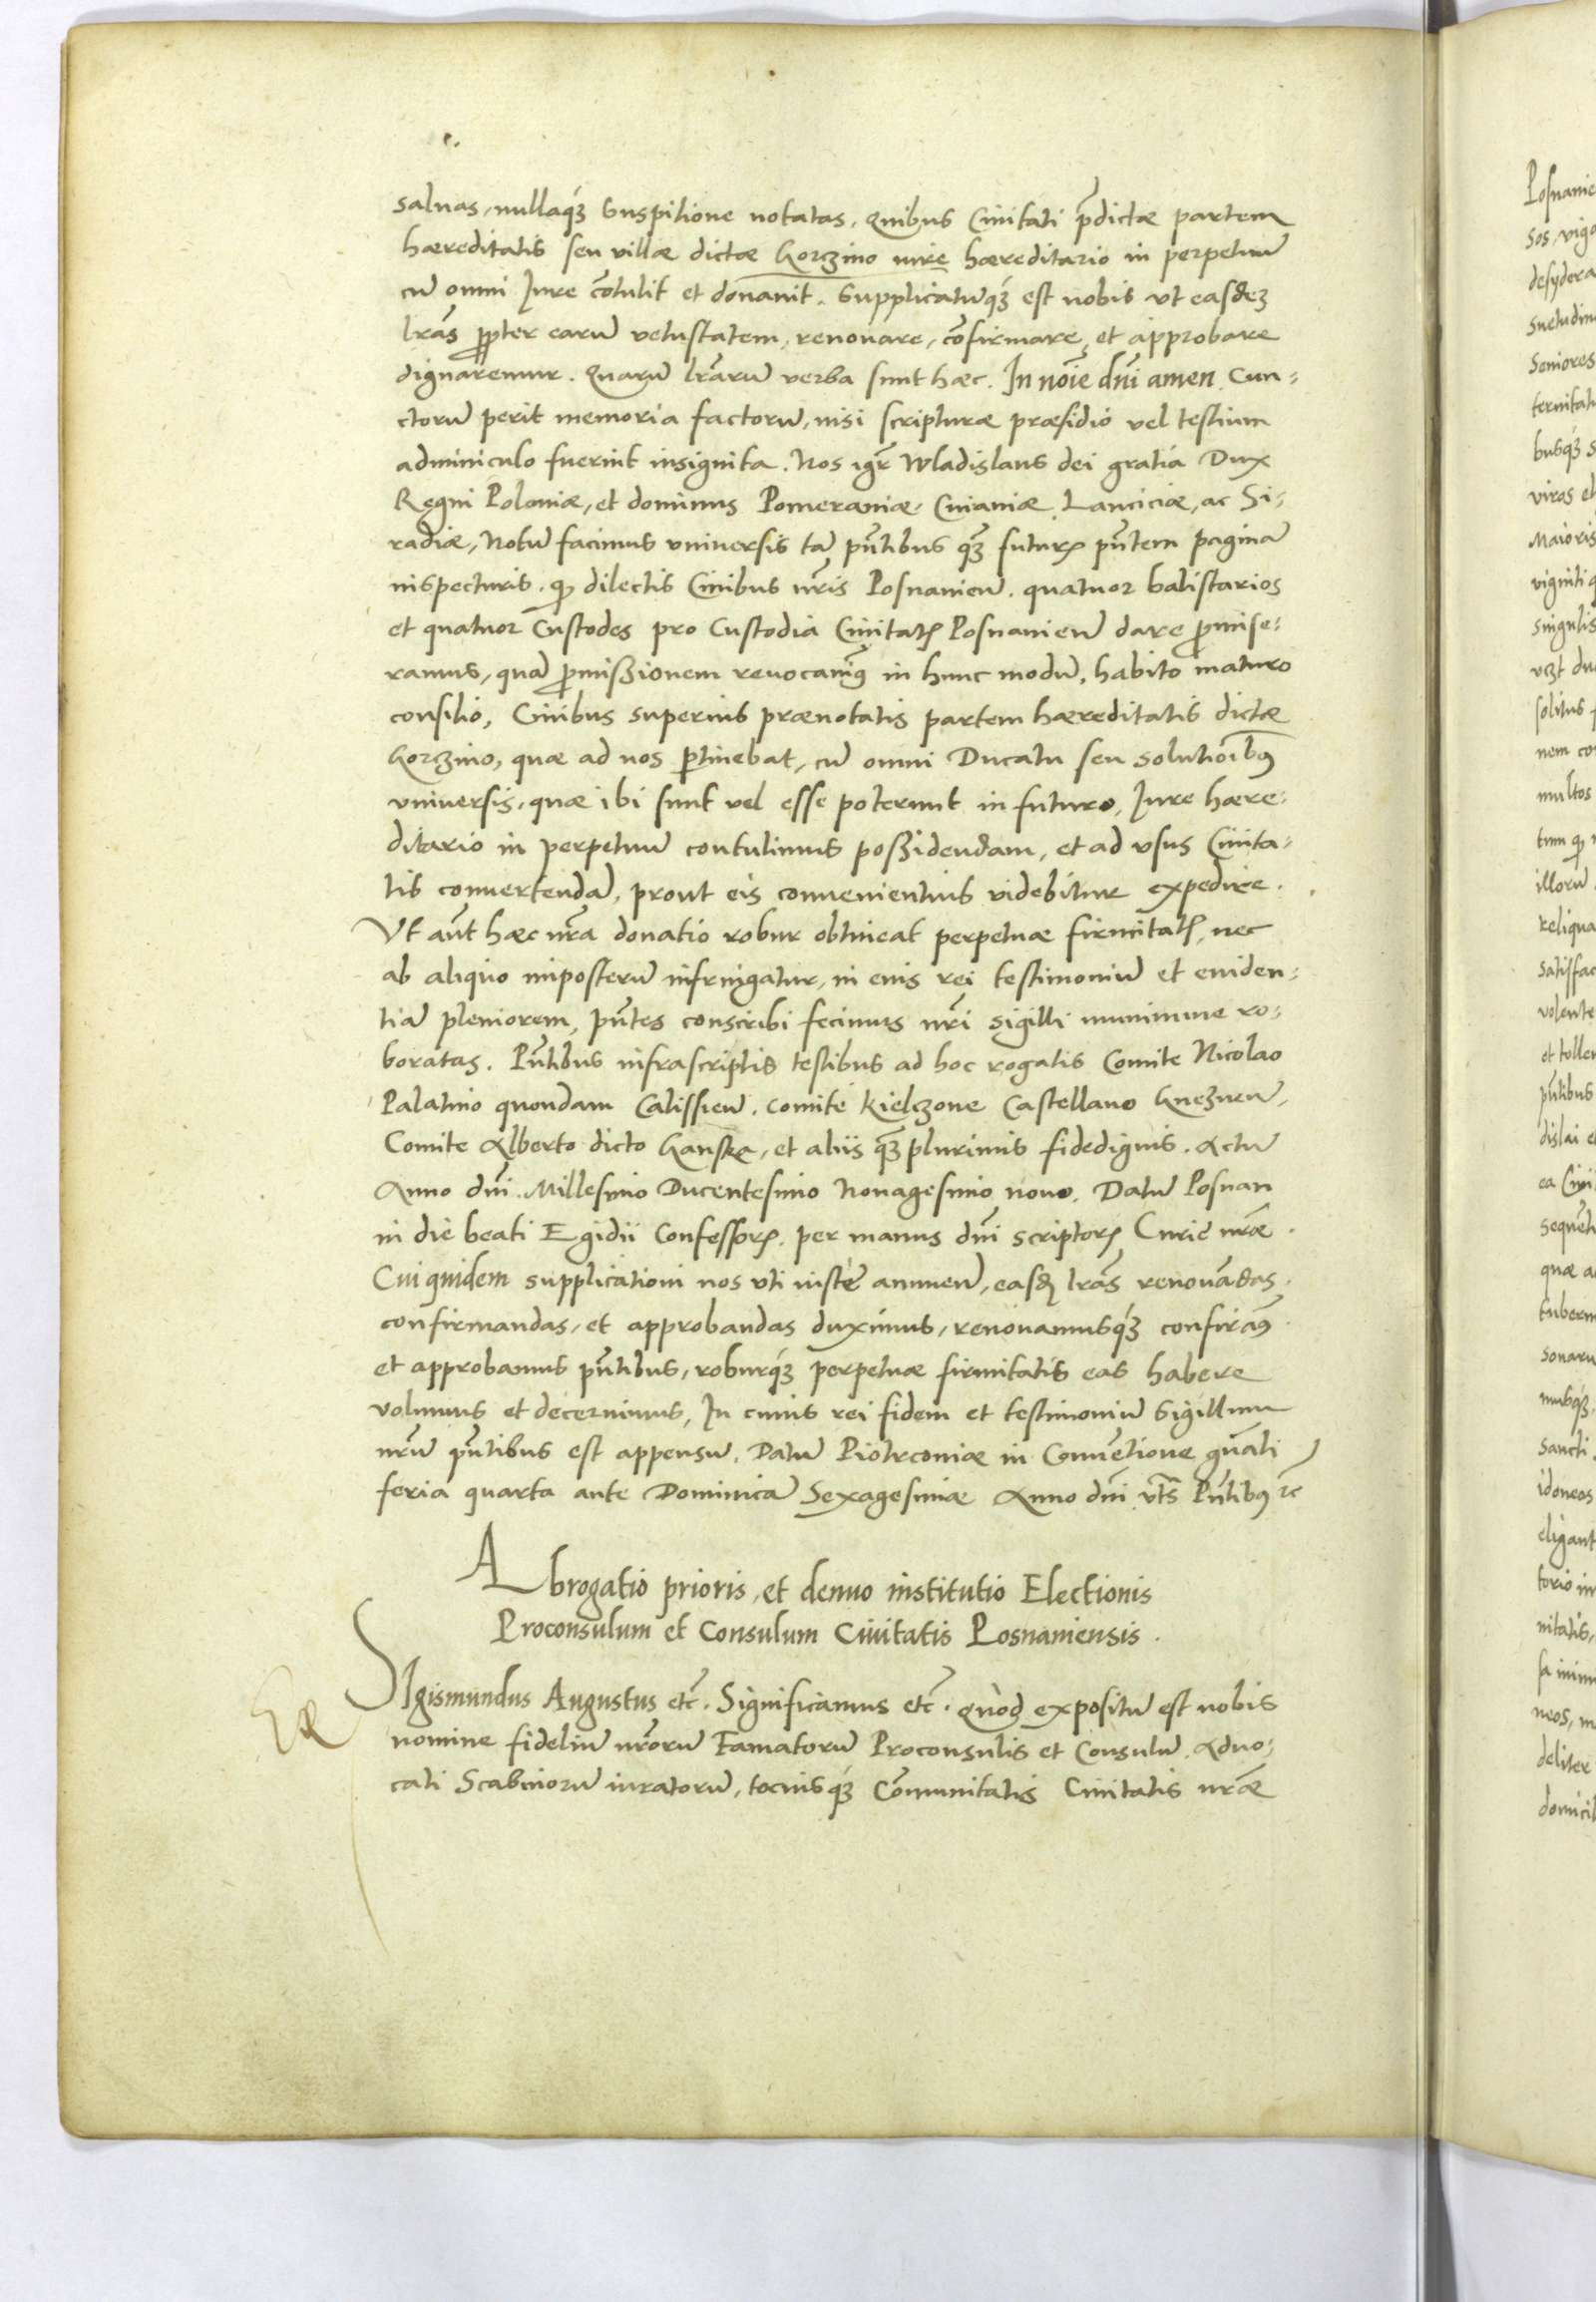 salvas, nullaqȝ suspitione notatas. Quibus Civitati p̄dictæ partem
hæreditatis seu villæ dictæ Gorczino iure hæreditario in perpetuū
cū omni Jure cōtulit et donavit. Supplicatūqȝ est nobis ut easdeȝ
lr̄as ꝓpter earū vetustatem, renovare, cōfirmare, et approbare
dignaremur. Quarū lr̄arū verba sunt hæc. In nōie dn̄i amen. Cun-
ctorū perit memoria factorū, nisi scripturæ præsidio vel testium
adminiculo fuerint insignita. Nos igr̄ Wladislaus dei gratia Dux
Regni Poloniæ, et dominus Pomeraniæ, Cuiaviæ, Lanciciæ, ac Si-
radiæ, Notū facimus universis tā pn̄tibus qȝ futurꝭ pn̄tem paginā
inspecturis. ꝙ dilectis Civibus nr̄is Posnanien̄. quatuor balistarios
et quatuor Custodes pro Custodia Civitatꝭ Posnanien̄ dare ꝓmise-
ramus, quā ꝓmissionem revocamꝰ in hunc modū, habito maturo
consilio, Civibus superius prænotatis partem hæreditatis dictæ
Gorczino, quæ ad nos ꝑtinebat, cū omni Ducatu seu solutioībꝰ
universis, quæ ibi sunt vel esse poterunt in futuro, Jure hære-
ditario in perpetuū contulimus possidendam, et ad usus Civita-
tis convertendā, prout eis convenientius videbitur expedire.
Ut aūt hæc nr̄a donatio robur obtineat perpetuæ firmitatꝭ, nec
ab aliquo imposterū infringatur, in euis rei testimoniū et eviden-
tiā pleniorem, pn̄tes conscribi fecimus nr̄i sigilli munimine ro-
boratas. Pn̄tibus infrascriptis testibus ad hoc rogatis Comite Nicolao
Palatino quondam Calissien̄. Comite Kielczone Castellano Gneznen̄,
Comite Alberto dicto Ganska, et aliis qȝ plurimis fidedignis. Actū
Anno dn̄i. Millesimo Ducentesimo Nonagesimo nono. Datū Posnan
in die beati Egidii Confessorꝭ, per manus dn̄i scriptorꝭ Curie nr̄æ.
Cui quidem supplicationi nos uti iustæ annuen̄, easdꝭ lr̄as renovādas,
confirmandas, et approbandas duximus, renovamusqȝ confirāꝰ
et approbamus pn̄tibus, roburqȝ perpetuæ firmitatis eas habere
volumus et decernimus, In cuius rei fidem et testimoniū sigillum
nr̄um pn̄tibus est appensū. Datū Piotrcoviæ in Conventione gn̄ali
feria quarta ante Dominicā Sexagesimæ Anno dn̄i ut s̄ Pn̄tibꝰ ꝛc
Abrogatio prioris, et denuo institutio Electionis
Proconsulum et Consulum Civitatis Posnaniensis.
SIgismundus Augustus etc̄. Significamus etc̄. Quod expositū est nobis
nomine fideliū nr̄orū Famatorū Proconsulis et Consulū. Advo-
cati Scabinorū iuratorū, tociusqȝ Cōmunitatis Civitatis nr̄æ